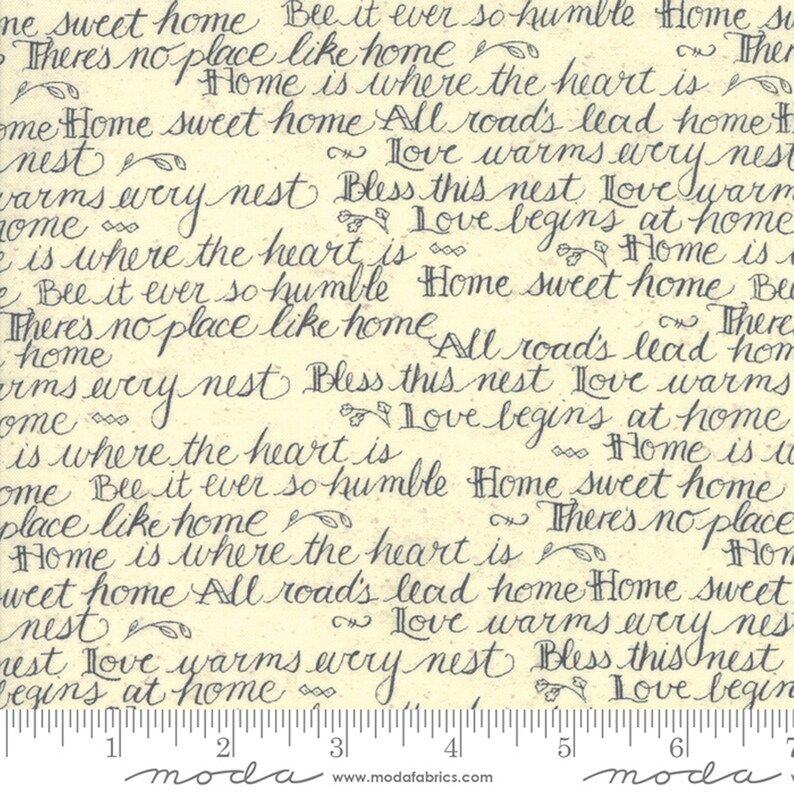 me sweet home Bee it ever so humble Home sw
There's no place like home Ther
Home is where the heart is
ome Home sweet home All road's lead home H
nest Love warms every nest
warms every nest Bless this nest Love warm
home Love begins at home
e is where the heart is Home is w
e Bee it ever so humble Home sweet home Bee
There's no place like home There
home All road's lead hom
rms every nest Bless this nest Love warms
ome Love begins at home
is where the heart is Home is w
ome Bee it ever so humble Home sweet home
place like home There's no place
Home is where the heart is Hom
weet home All road's lead home Home sweet
nest Love warms every nes
nest Love warms every nest Bless this nest
begins at home Love begin
1 2 3 4 5 6 7
moda www.modafabrics.com moda